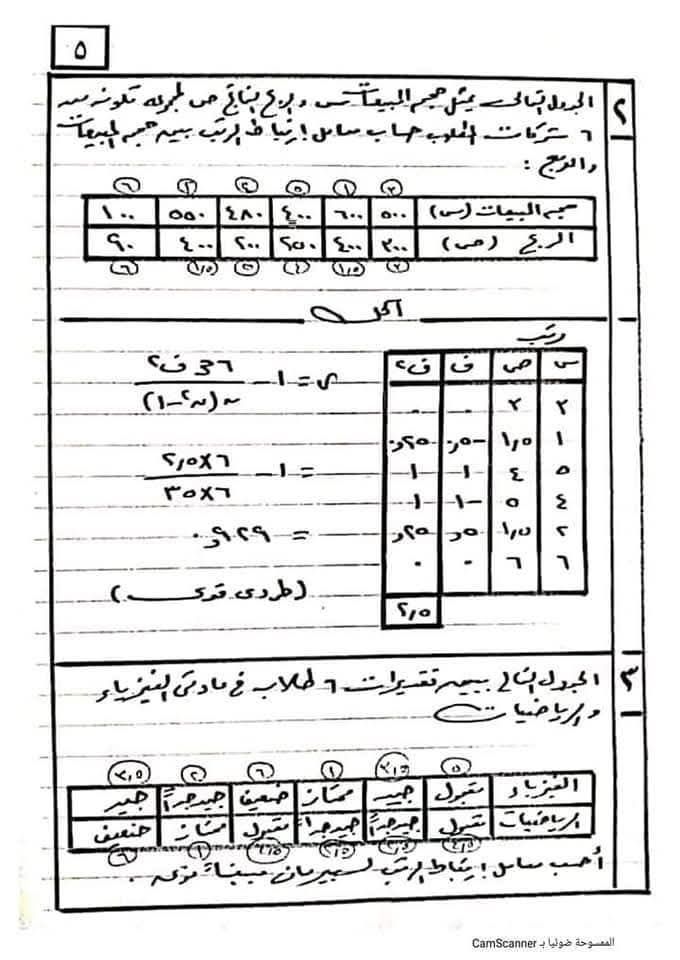 ٥
٢ الجدول التالى يمثل حجم المبيعات س والربح الناتج ص لمجموعة تكونه من
٦ شركات اطلوب حساب معامل ارتباط الرتب بين حجم المبيعات
والربح :
٣ ١ ٥ ٤ ٢ ٦
حجم المبيعات (س) ٥٠٠ ٦٠٠ ٤٠٠ ٤٨٠ ٥٥٠ ١٠٠
الربح (ص) ٣٠٠ ٤٠٠ ٢٥٠ ٢٠٠ ٤٠٠ ٩٠
٣ ١,٥ ٤ ٥ ١,٥ ٦
الحل
رتب
س ص ف ف٢
٣ ٣ ٠ ٠
١ ١,٥ -٥,٠ ٢٥,٠
٥ ٤ ١ ١
٤ ٥ -١ ١
٢ ١,٥ ٥,٠ ٢٥,٠
٦ ٦ ٠ ٠
٢,٥
ر = ١ - ٦ مجـ ف٢ / ن (ن٢ - ١)
= ١ - ٦ × ٢,٥ / ٦ × ٣٥
= ٩٢٩,٠
(طردى قوى)
٣ الجدول التالي يبين تقديرات ٦ طلاب في مادتى الفيزياء
والرياضيات
٥ ٣,٥ ١ ٦ ٢ ٣,٥
الفيزياء مقبول جيد ممتاز ضعيف جيدجداً جيد
الرياضيات مقبول جيدجداً جيدجداً مقبول ممتاز ضعيف
٤,٥ ٢,٥ ٢,٥ ٤,٥ ١ ٦
أحسب معامل ارتباط الرتب لسبيرمان مبيناً نوعه .
الممسوحة ضوئيا بـ CamScanner